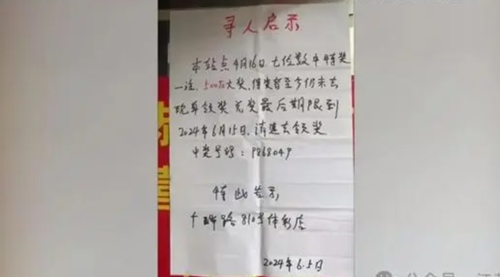 寻人启示
本站点4月16日七位数中特奖
一注,500万大奖,得奖者至今仍未去
晚年领奖 兑奖最后期限到
2024年6月15日,请速去领奖
中奖号码:9868049
特此告示
810号体彩店
2024年6.5日
公众号